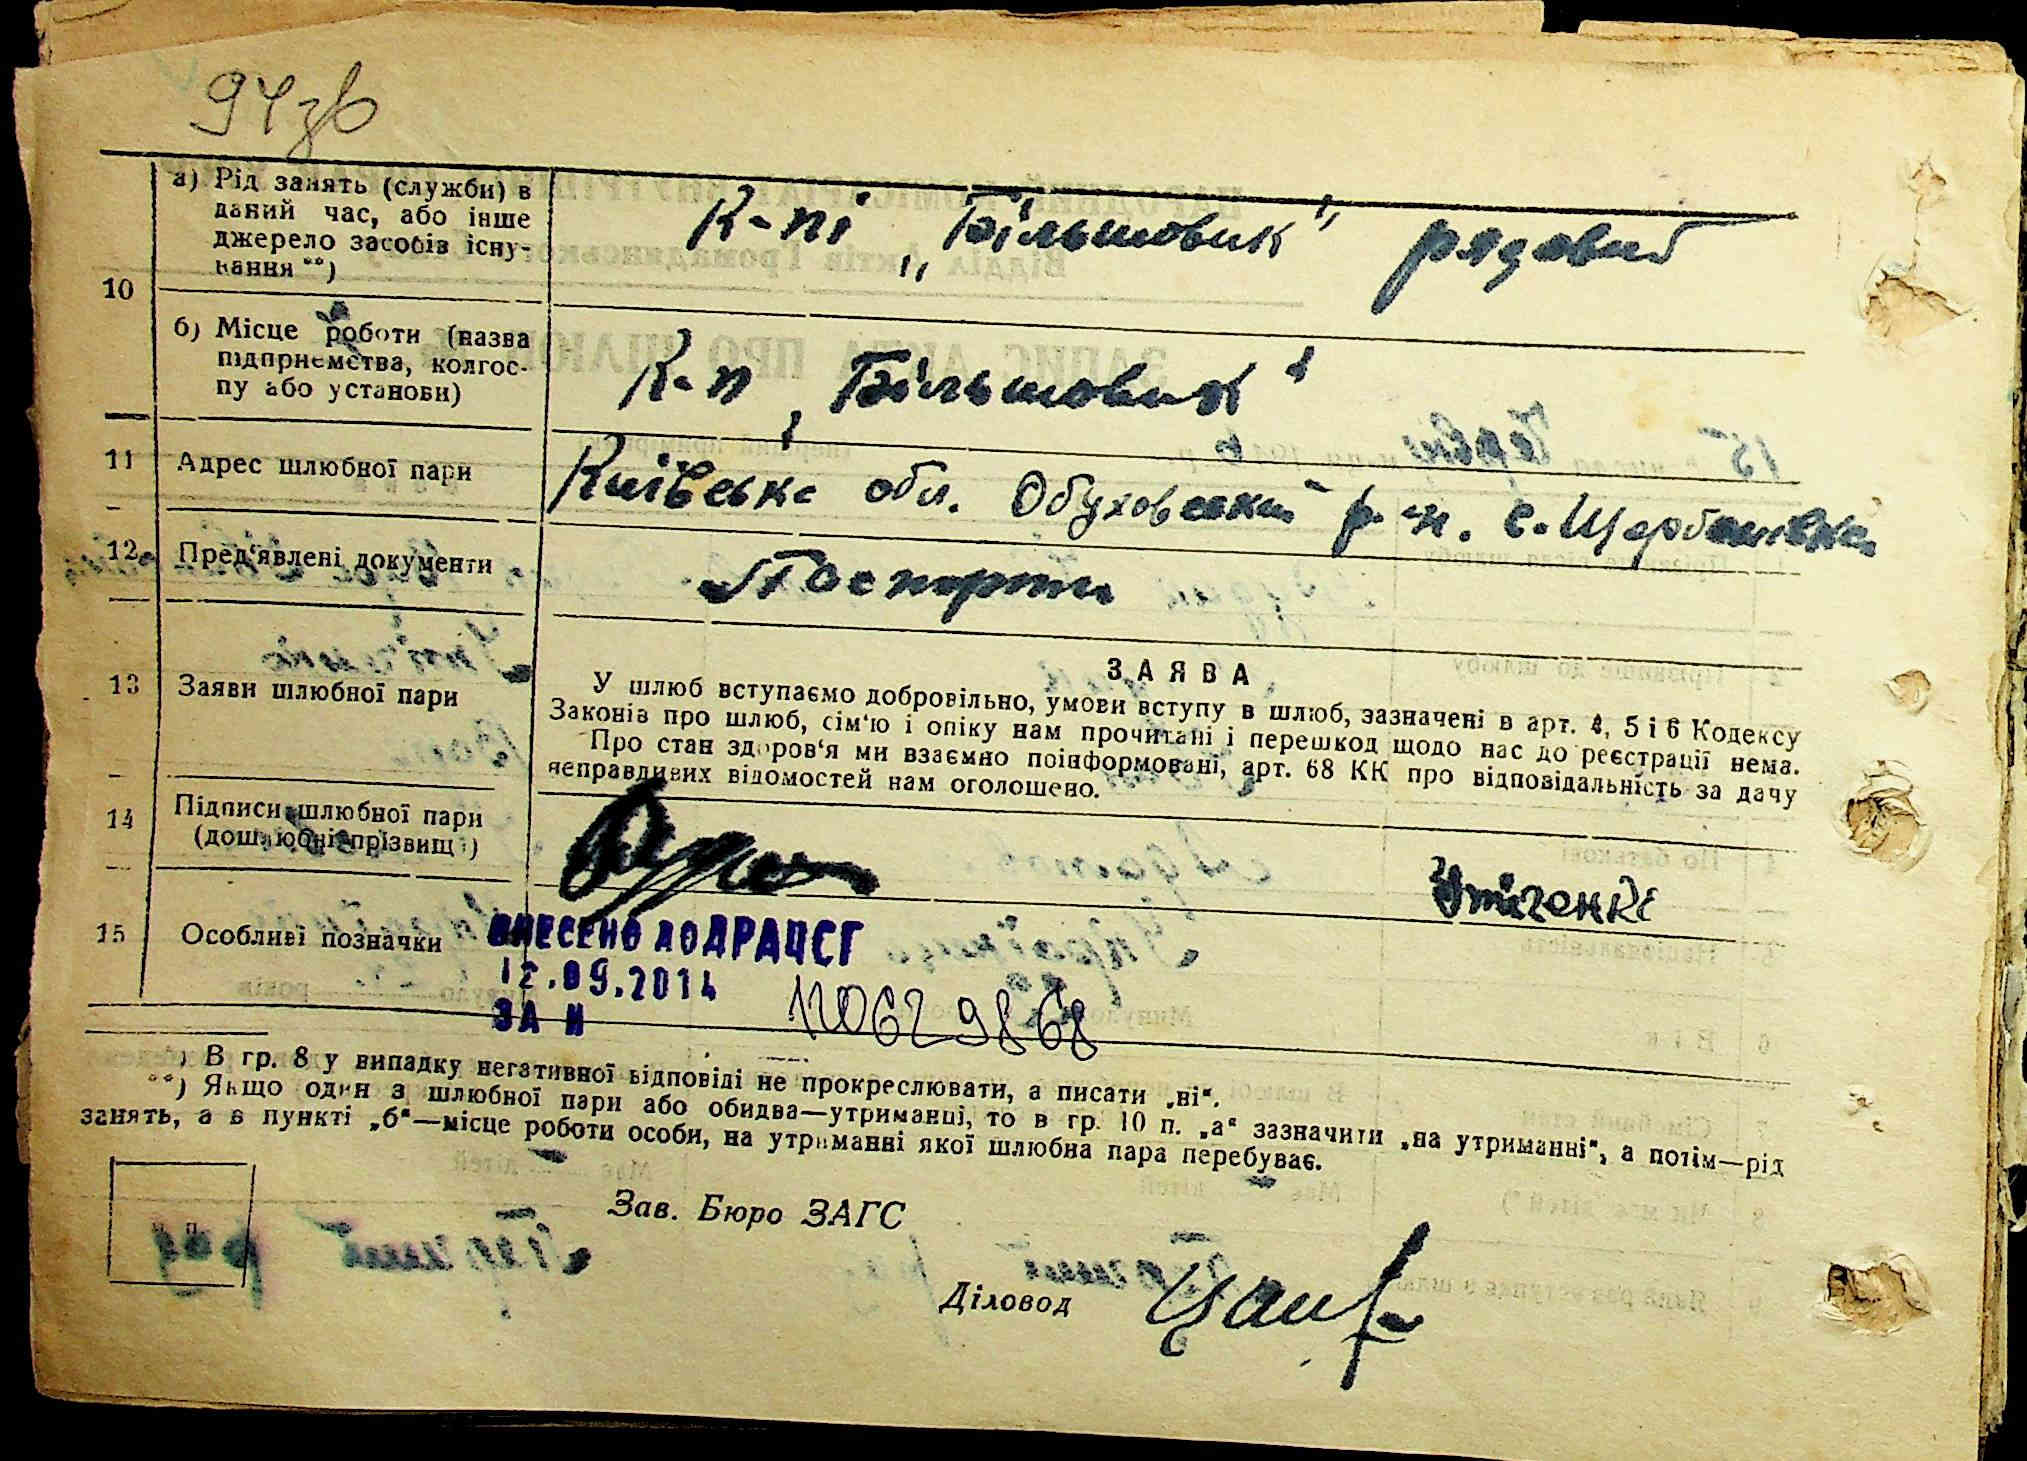 94зв
10
а) Рід занять (служби) в
даний час, або інше
джерело засобів існу-
вання **)
К-пі „Більшовик" рядовий
б) Місце роботи (назва
підприємства, колгос-
пу або установи)
К-п „Більшовик"
11
Адрес шлюбної пари
Київська обл. Обуховський р-н. с. Щербанівка
12
Пред'явлені документи
Паспорти
13
Заяви шлюбної пари
ЗАЯВА
У шлюб вступаємо добровільно, умови вступу в шлюб, зазначені в арт. 4, 5 і 6 Кодексу
Законів про шлюб, сім'ю і опіку нам прочитані і перешкод щодо нас до реєстрації нема.
Про стан здоров'я ми взаємно поінформовані, арт. 68 КК про відповідальність за дачу
неправдивих відомостей нам оголошено.
14
Підписи шлюбної пари
(дошлюбні прізвища)
15
Особливі позначки
ВНЕСЕНО ДО ДРАЦСГ
12.09.2014
ЗА N
) В гр. 8 у випадку негативної відповіді не прокреслювати, а писати „ні".
**) Якщо один з шлюбної пари або обидва—утриманці, то в гр. 10 п. „а" зазначити „на утриманні", а потім—рід
занять, а в пункті „б"—місце роботи особи, на утриманні якої шлюбна пара перебуває.
Зав. Бюро ЗАГС
Діловод